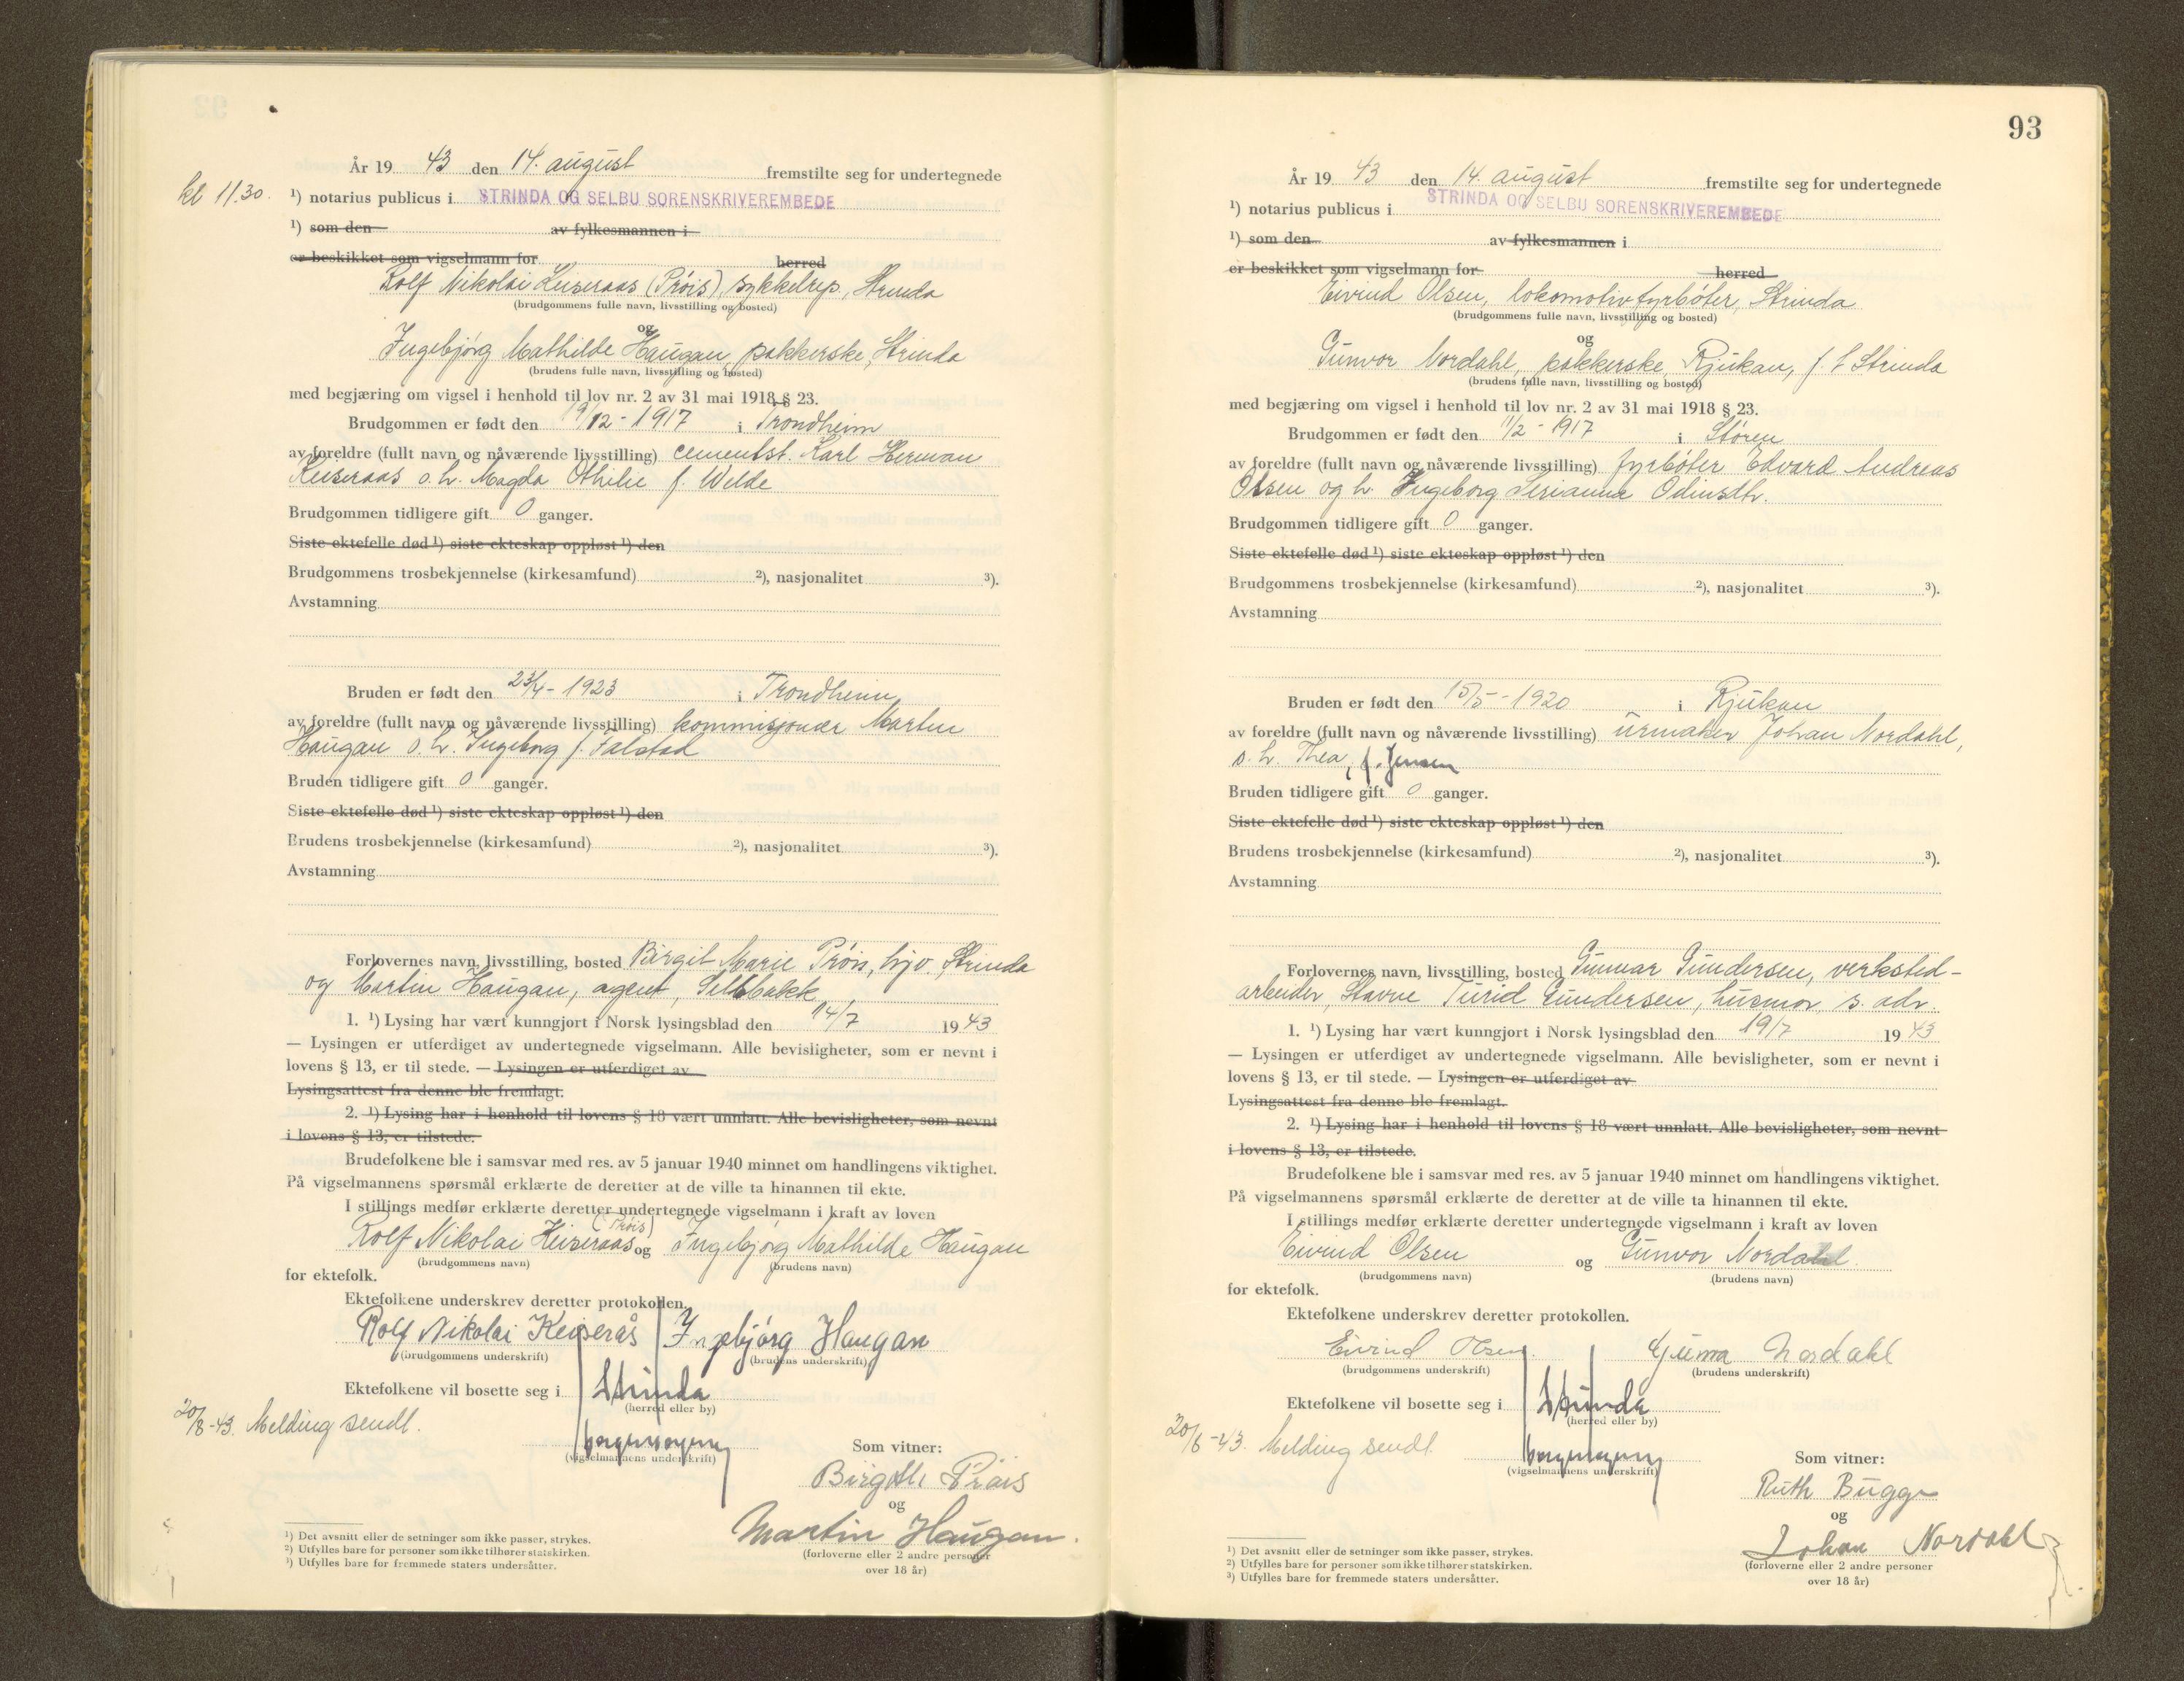 År 19 43 den 14. august fremstilte seg for undertegnede
kl 11.30. ¹) notarius publicus i STRINDA OG SELBU SORENSKRIVEREMBEDE
¹) som den av fylkesmannen i
er beskikket som vigselmann for herred
Rolf Nikolai Keiseraas (Prøis), sykkelrep, Strinda
(brudgommens fulle navn, livsstilling og bosted)
og
Ingebjørg Mathilde Haugan, pakkerske, Strinda
(brudens fulle navn, livsstilling og bosted)
med begjæring om vigsel i henhold til lov nr. 2 av 31 mai 1918 § 23.
Brudgommen er født den 19/12 - 1917 i Trondheim
av foreldre (fullt navn og nåværende livsstilling) cementst. Karl Herman
Keiseraas o.h. Magda Othilie f. Welde
Brudgommen tidligere gift 0 ganger.
Siste ektefelle død ¹) siste ekteskap oppløst ¹) den
Brudgommens trosbekjennelse (kirkesamfund) ²), nasjonalitet ³).
Avstamning
Bruden er født den 23/4 - 1923 i Trondheim
av foreldre (fullt navn og nåværende livsstilling) kommisjonær Martin
Haugan o.h. Ingeborg f. Falstad
Bruden tidligere gift 0 ganger.
Siste ektefelle død ¹) siste ekteskap oppløst ¹) den
Brudens trosbekjennelse (kirkesamfund) ²), nasjonalitet ³).
Avstamning
Forlovernes navn, livsstilling, bosted Birgit Marie Prøis, Strinda
og Martin Haugan, agent,
1. ¹) Lysing har vært kunngjort i Norsk lysingsblad den 14/7 19 43
— Lysingen er utferdiget av undertegnede vigselmann. Alle bevisligheter, som er nevnt i
lovens § 13, er til stede. — Lysingen er utferdiget av
Lysingsattest fra denne ble fremlagt.
2. ¹) Lysing har i henhold til lovens § 18 vært unnlatt. Alle bevisligheter, som nevnt
i lovens § 13, er tilstede.
Brudefolkene ble i samsvar med res. av 5 januar 1940 minnet om handlingens viktighet.
På vigselmannens spørsmål erklærte de deretter at de ville ta hinannen til ekte.
I stillings medfør erklærte deretter undertegnede vigselmann i kraft av loven
(Prøis)
Rolf Nikolai Keiseraas og Ingebjørg Mathilde Haugan
(brudgommens navn) (brudens navn)
for ektefolk.
Ektefolkene underskrev deretter protokollen.
Rolf Nikolai Keiserås Ingebjørg Haugan
(brudgommens underskrift) (brudens underskrift)
Ektefolkene vil bosette seg i Strinda
(herred eller by)
20/8-43. Melding sendt.
(vigselmannens underskrift)
Som vitner:
Birgith Prøis
og
Martin Haugan.
(forloverne eller 2 andre personer
over 18 år)
¹) Det avsnitt eller de setninger som ikke passer, strykes.
²) Utfylles bare for personer som ikke tilhører statskirken.
³) Utfylles bare for fremmede staters undersåtter.
93
År 19 43 den 14. august fremstilte seg for undertegnede
¹) notarius publicus i STRINDA OG SELBU SORENSKRIVEREMBEDE
¹) som den av fylkesmannen i
er beskikket som vigselmann for herred
Eivind Olsen, lokomotivfyrbøter, Strinda
(brudgommens fulle navn, livsstilling og bosted)
og
Gunvor Nordahl, pakkerske, Rjukan, f. t. Strinda
(brudens fulle navn, livsstilling og bosted)
med begjæring om vigsel i henhold til lov nr. 2 av 31 mai 1918 § 23.
Brudgommen er født den 11/2 - 1917 i Støren
av foreldre (fullt navn og nåværende livsstilling) fyrbøter Edvard Andreas
Olsen og h. Ingeborg Serianna Odinsdtr.
Brudgommen tidligere gift 0 ganger.
Siste ektefelle død ¹) siste ekteskap oppløst ¹) den
Brudgommens trosbekjennelse (kirkesamfund) ²), nasjonalitet ³).
Avstamning
Bruden er født den 15/5 - 1920 i Rjukan
av foreldre (fullt navn og nåværende livsstilling) urmaker Johan Nordahl,
o. h. Thea, f. Jensen
Bruden tidligere gift 0 ganger.
Siste ektefelle død ¹) siste ekteskap oppløst ¹) den
Brudens trosbekjennelse (kirkesamfund) ²), nasjonalitet ³).
Avstamning
Forlovernes navn, livsstilling, bosted Gunnar Gundersen, verksted-
arbeider, Stavne Turid Gundersen, husmor s. adr.
1. ¹) Lysing har vært kunngjort i Norsk lysingsblad den 19/7 19 43
— Lysingen er utferdiget av undertegnede vigselmann. Alle bevisligheter, som er nevnt i
lovens § 13, er til stede. — Lysingen er utferdiget av
Lysingsattest fra denne ble fremlagt.
2. ¹) Lysing har i henhold til lovens § 18 vært unnlatt. Alle bevisligheter, som nevnt
i lovens § 13, er tilstede.
Brudefolkene ble i samsvar med res. av 5 januar 1940 minnet om handlingens viktighet.
På vigselmannens spørsmål erklærte de deretter at de ville ta hinannen til ekte.
I stillings medfør erklærte deretter undertegnede vigselmann i kraft av loven
Eivind Olsen og Gunvor Nordahl.
(brudgommens navn) (brudens navn)
for ektefolk.
Ektefolkene underskrev deretter protokollen.
Eivind Olsen. Nordahl
(brudgommens underskrift) (brudens underskrift)
Ektefolkene vil bosette seg i Strinda
(herred eller by)
20/8-43. Melding sendt.
(vigselmannens underskrift)
Som vitner:
Ruth Bugge
og
Johan Nordahl
(forloverne eller 2 andre personer
over 18 år)
¹) Det avsnitt eller de setninger som ikke passer, strykes.
²) Utfylles bare for personer som ikke tilhører statskirken.
³) Utfylles bare for fremmede staters undersåtter.